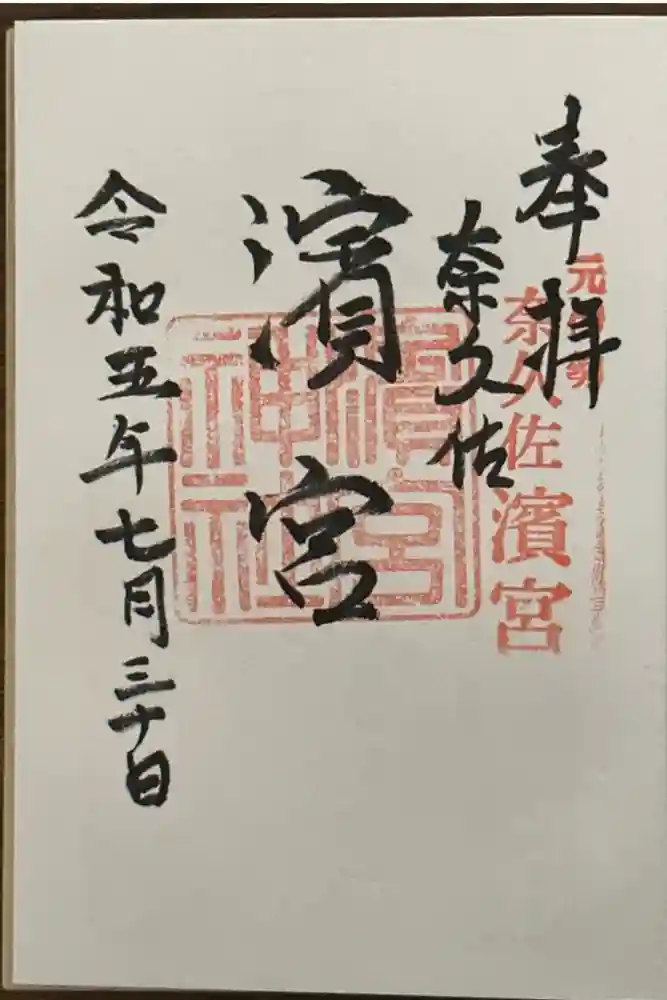 奉拝
元伊勢
奈久佐濱宮
奈久佐
濱宮
濱宮
神社
令和五年七月三十日